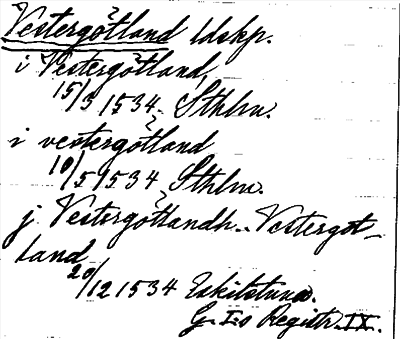 Vestergötland ldskp.
i Vestergötland,
15/5 1534 Sthlm.
i vestergötland
10/5 1534 Sthlm.
j Vestergötlandh.. Vestergöt-
land
20/12 1534 Eskilstuna.
G. I:s Registr. IX.